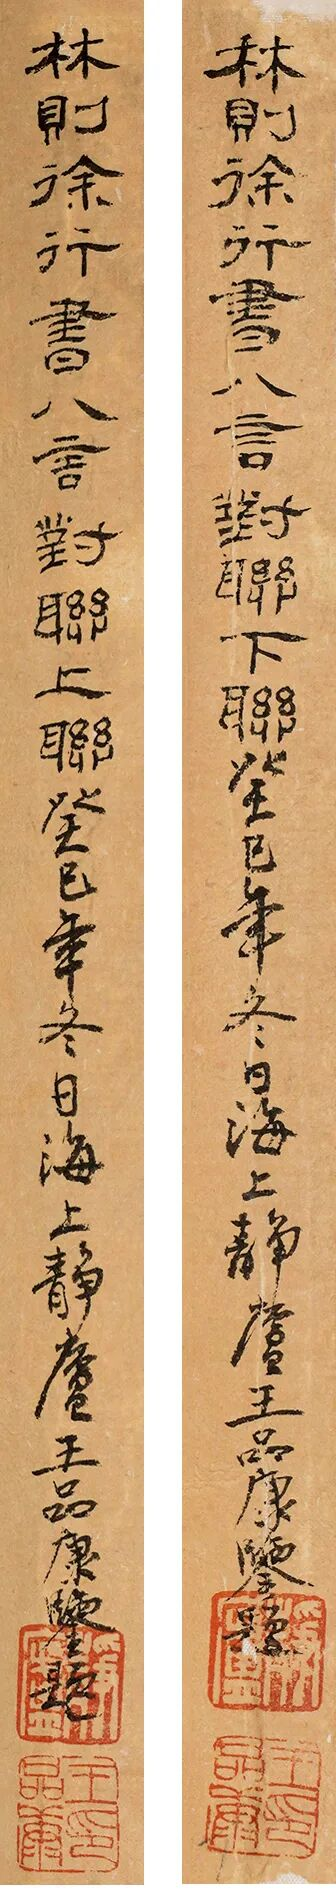 林則徐行書八言對聯上聯癸巳年冬日海上靜廬王品康鑒題
靜廬
王印品康
林則徐行書八言對聯下聯癸巳年冬日海上靜廬王品康鑒題
靜廬
王印品康